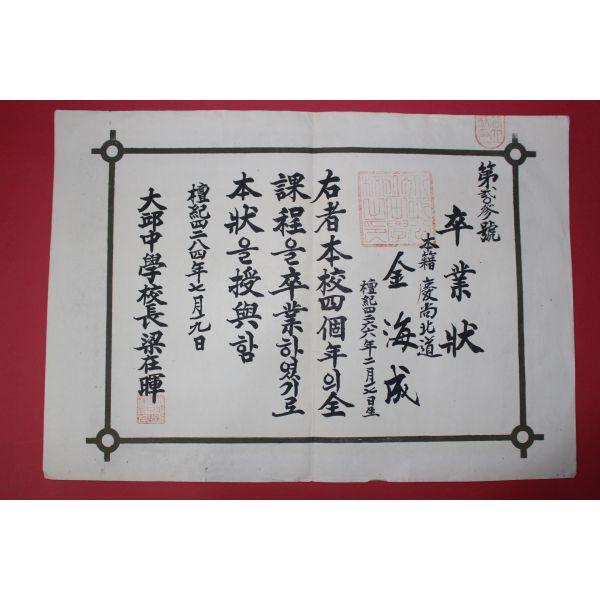 第貳參號
卒業狀
本籍 慶尚北道
金海成
檀紀四二六六年二月七日生
右者本校四個年의全
課程을卒業하였기로
本狀을授與함
檀紀四二八四年七月一九日
大邱中學校長 梁在暉